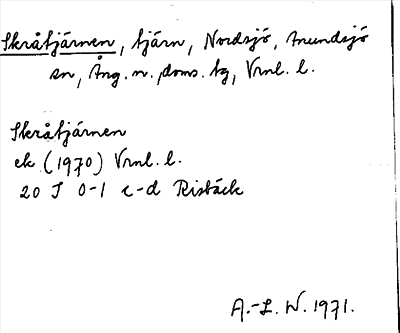 Skråtjärnen, tjärn, Nordsjö, Anundsjö
sn, Ång. n. doms. tg, Vrnl. l.
Skråtjärnen
ek (1970) Vrnl. l.
20 J 0-1 c-d Risbäck
A.-L. W. 1971.